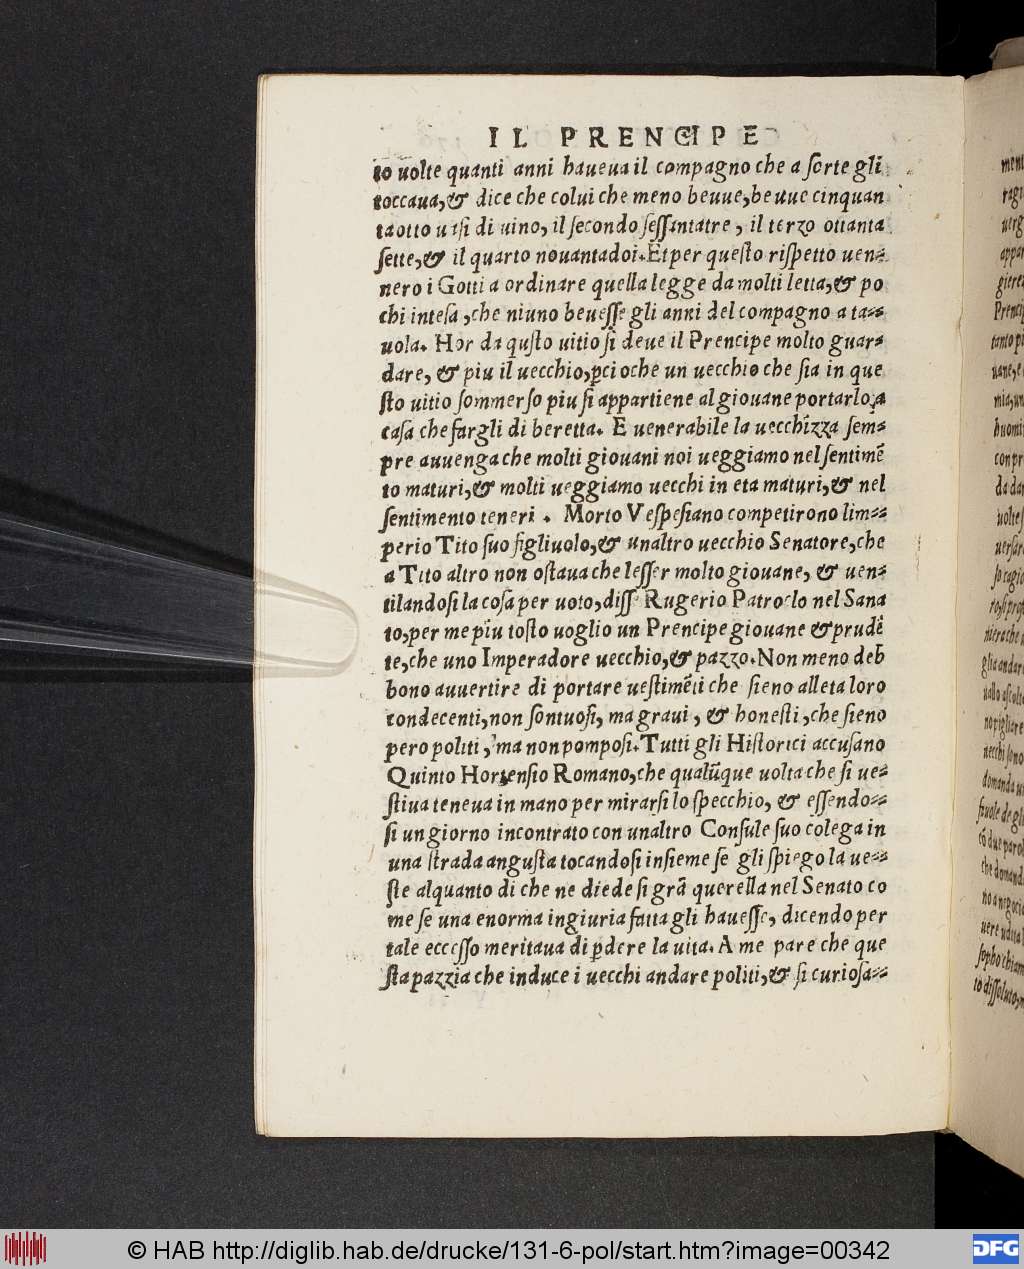 IL PRENCIPE
to uolte quanti anni haueua il compagno che a ſorte gli
toccaua,& dice che colui che meno beuue,beuue cinquan
taotto uaſi di uino, il ſecondo ſeſſantatre, il terzo ottanta
ſette,& il quarto nouantadoi.Et per queſto riſpetto uen⸗
nero i Gotti a ordinare quella legge da molti letta,& po
chi inteſa ,che niuno beueſſe gli anni del compagno a ta⸗
uola. Hor da quſto uitio ſi deue il Prencipe molto guar⸗
dare, & piu il uecchio,ꝑcioche un uecchio che ſia in que
ſto uitio ſommerſo piu ſi appartiene al giouane portarlo,a
caſa che fargli di beretta. E uenerabile la uecchizza ſem⸗
pre auuenga che molti giouani noi ueggiamo nel ſentimẽ
to maturi,& molti ueggiamo uecchi in eta maturi,& nel
ſentimento teneri . Morto Veſpeſiano competirono lim⸗
perio Tito ſuo figliuolo,& unaltro uecchio Senatore,che
a Tito altro non oſtaua che leſſer molto giouane, & uen⸗
tilandoſi la coſa per uoto,diſſe Rugerio Patroclo nel Sana
to,per me piu toſto uoglio un Prencipe giouane & prudẽ
te,che uno Imperadore uecchio,& pazzo.Non meno deb
bono auuertire di portare ueſtimẽti che ſieno alleta loro
condecenti,non ſontuoſi, ma graui , & honeſti ,che ſieno
pero politi , ma non pompoſi.Tutti gli Hiſtorici accuſano
Quinto Hortenſio Romano,che qualũque uolta che ſi ue⸗
ſtiua teneua in mano per mirarſi lo ſpecchio, & eſſendo⸗
ſi un giorno incontrato con unaltro Conſule ſuo colega in
una ſtrada anguſta tocandoſi inſieme ſe gli ſpiego la ue⸗
ſte alquanto di che ne diede ſi grã querella nel Senato co
me ſe una enorma ingiuria fatta gli haueſſe, dicendo per
tale ecceſſo meritaua di ꝑdere la uita. A me pare che que
ſta pazzia che induce i uecchi andare politi,& ſi curioſa⸗
© HAB http://diglib.hab.de/drucke/131-6-pol/start.htm?image=00342
DFG